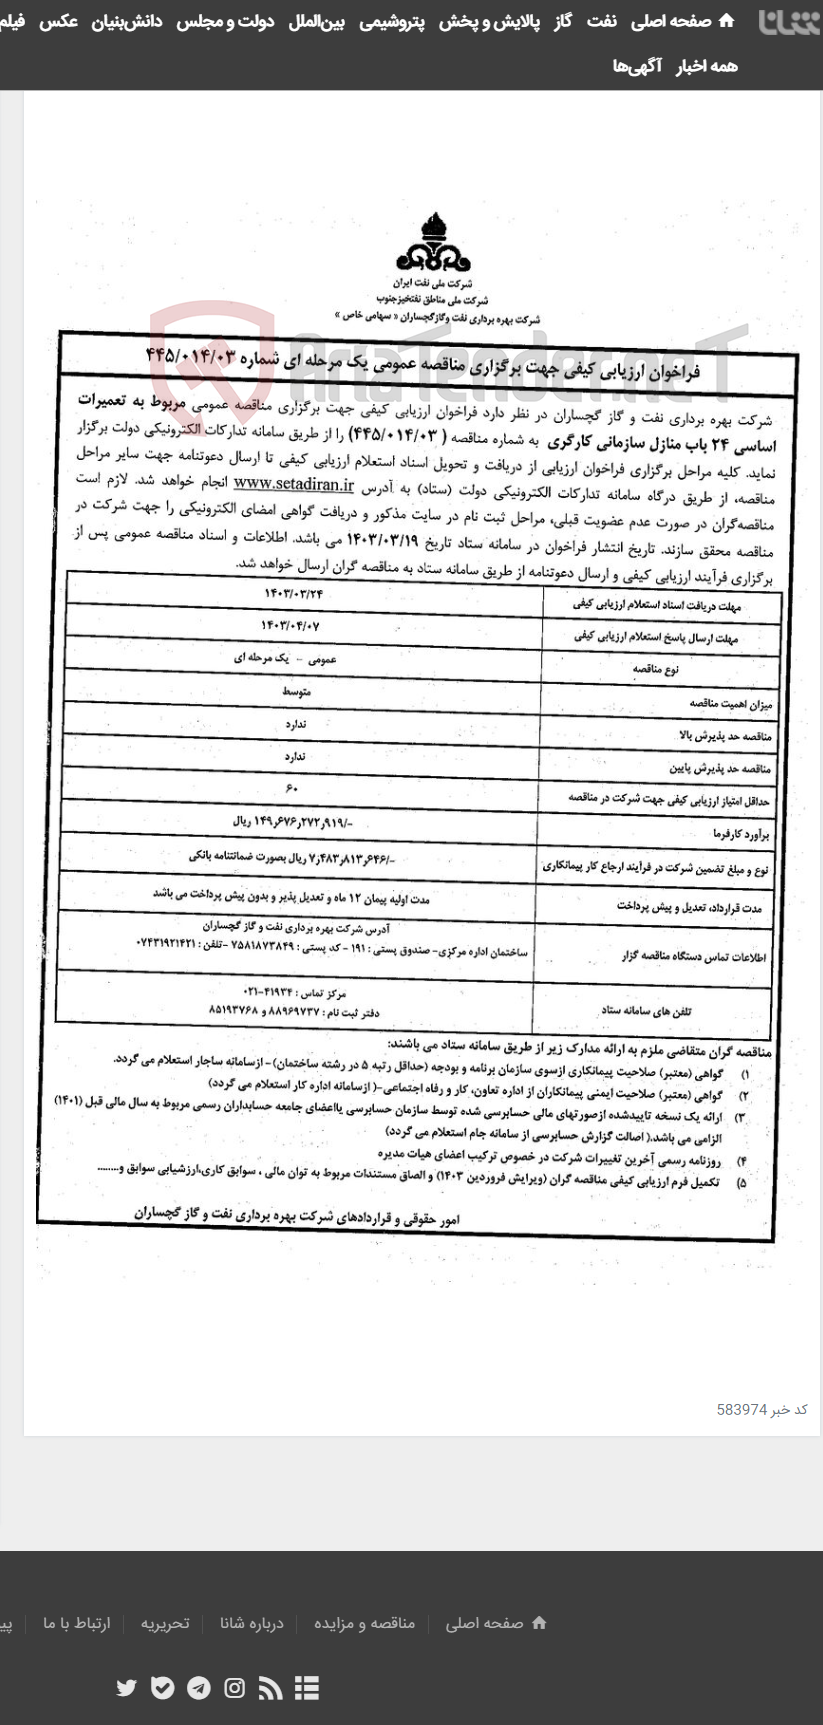 شانا
صفحه اصلی نفت گاز پالایش و پخش پتروشیمی بین‌الملل دولت و مجلس دانش‌بنیان عکس فیلم
همه اخبار آگهی‌ها
شرکت ملی نفت ایران
شرکت ملی مناطق نفتخیز جنوب
شرکت بهره برداری نفت و گاز گچساران « سهامی خاص »
AriaTender.neT
فراخوان ارزیابی کیفی جهت برگزاری مناقصه عمومی یک مرحله ای شماره ۴۴۵/۰۱۴/۰۳
شرکت بهره برداری نفت و گاز گچساران در نظر دارد فراخوان ارزیابی کیفی جهت برگزاری مناقصه عمومی مربوط به تعمیرات
اساسی ۲۴ باب منازل سازمانی کارگری به شماره مناقصه ( ۴۴۵/۰۱۴/۰۳) را از طریق سامانه تدارکات الکترونیکی دولت برگزار
نماید. کلیه مراحل برگزاری فراخوان ارزیابی از دریافت و تحویل اسناد استعلام ارزیابی کیفی تا ارسال دعوتنامه جهت سایر مراحل
مناقصه، از طریق درگاه سامانه تدارکات الکترونیکی دولت (ستاد) به آدرس www.setadiran.ir انجام خواهد شد. لازم است
مناقصه‌گران در صورت عدم عضویت قبلی، مراحل ثبت نام در سایت مذکور و دریافت گواهی امضای الکترونیکی را جهت شرکت در
مناقصه محقق سازند. تاریخ انتشار فراخوان در سامانه ستاد تاریخ ۱۴۰۳/۰۳/۱۹ می باشد. اطلاعات و اسناد مناقصه عمومی پس از
برگزاری فرآیند ارزیابی کیفی و ارسال دعوتنامه از طریق سامانه ستاد به مناقصه گران ارسال خواهد شد.
مهلت دریافت اسناد استعلام ارزیابی کیفی ۱۴۰۳/۰۳/۲۴
مهلت ارسال پاسخ استعلام ارزیابی کیفی ۱۴۰۳/۰۴/۰۷
نوع مناقصه عمومی – یک مرحله ای
میزان اهمیت مناقصه متوسط
مناقصه حد پذیرش بالا ندارد
مناقصه حد پذیرش پایین ندارد
حداقل امتیاز ارزیابی کیفی جهت شرکت در مناقصه ۶۰
برآورد کارفرما ۱۴۹٫۶۷۶٫۲۷۲٫۹۱۹/- ریال
نوع و مبلغ تضمین شرکت در فرآیند ارجاع کار پیمانکاری ۷٫۴۸۳٫۸۱۳٫۶۴۶/- ریال بصورت ضمانتنامه بانکی
مدت قرارداد، تعدیل و پیش پرداخت مدت اولیه پیمان ۱۲ ماه و تعدیل پذیر و بدون پیش پرداخت می باشد
آدرس شرکت بهره برداری نفت و گاز گچساران
اطلاعات تماس دستگاه مناقصه گزار ساختمان اداره مرکزی- صندوق پستی : ۱۹۱ - کد پستی : ۷۵۸۱۸۷۳۸۴۹ -تلفن : ۰۷۴۳۱۹۲۱۴۲۱
مرکز تماس : ۴۱۹۳۴-۰۲۱
تلفن های سامانه ستاد
دفتر ثبت نام : ۸۸۹۶۹۷۳۷ و ۸۵۱۹۳۷۶۸
مناقصه گران متقاضی ملزم به ارائه مدارک زیر از طریق سامانه ستاد می باشند:
۱) گواهی (معتبر) صلاحیت پیمانکاری ازسوی سازمان برنامه و بودجه (حداقل رتبه ۵ در رشته ساختمان)- ازسامانه ساجار استعلام می گردد.
۲) گواهی (معتبر) صلاحیت ایمنی پیمانکاران از اداره تعاون، کار و رفاه اجتماعی-( ازسامانه اداره کار استعلام می گردد)
۳) ارائه یک نسخه تاییدشده ازصورتهای مالی حسابرسی شده توسط سازمان حسابرسی یااعضای جامعه حسابداران رسمی مربوط به سال مالی قبل (۱۴۰۱)
الزامی می باشد.( اصالت گزارش حسابرسی از سامانه جام استعلام می گردد)
۴) روزنامه رسمی آخرین تغییرات شرکت در خصوص ترکیب اعضای هیات مدیره
۵) تکمیل فرم ارزیابی کیفی مناقصه گران (ویرایش فروردین ۱۴۰۳) و الصاق مستندات مربوط به توان مالی ، سوابق کاری،ارزشیابی سوابق و........
امور حقوقی و قراردادهای شرکت بهره برداری نفت و گاز گچساران
کد خبر 583974
صفحه اصلی مناقصه و مزایده درباره شانا تحریریه ارتباط با ما